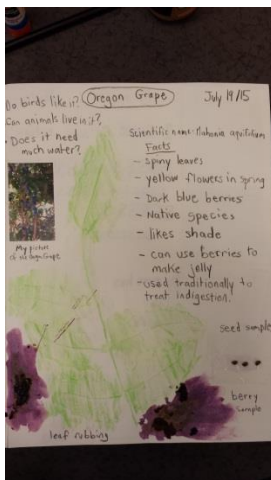 Do birds like it?
Oregon Grape
July 19/15
Can animals live in it?
• Does it need
much water?
Scientific name: Mahonia aquifolium
Facts
- Spiny leaves
- yellow flowers in spring
- Dark blue berries
- Native species
- likes shade
- can use berries to
make jelly
- used traditionally to
treat indigestion.
My picture
of an Oregon Grape
seed sample
berry
sample
leaf rubbing